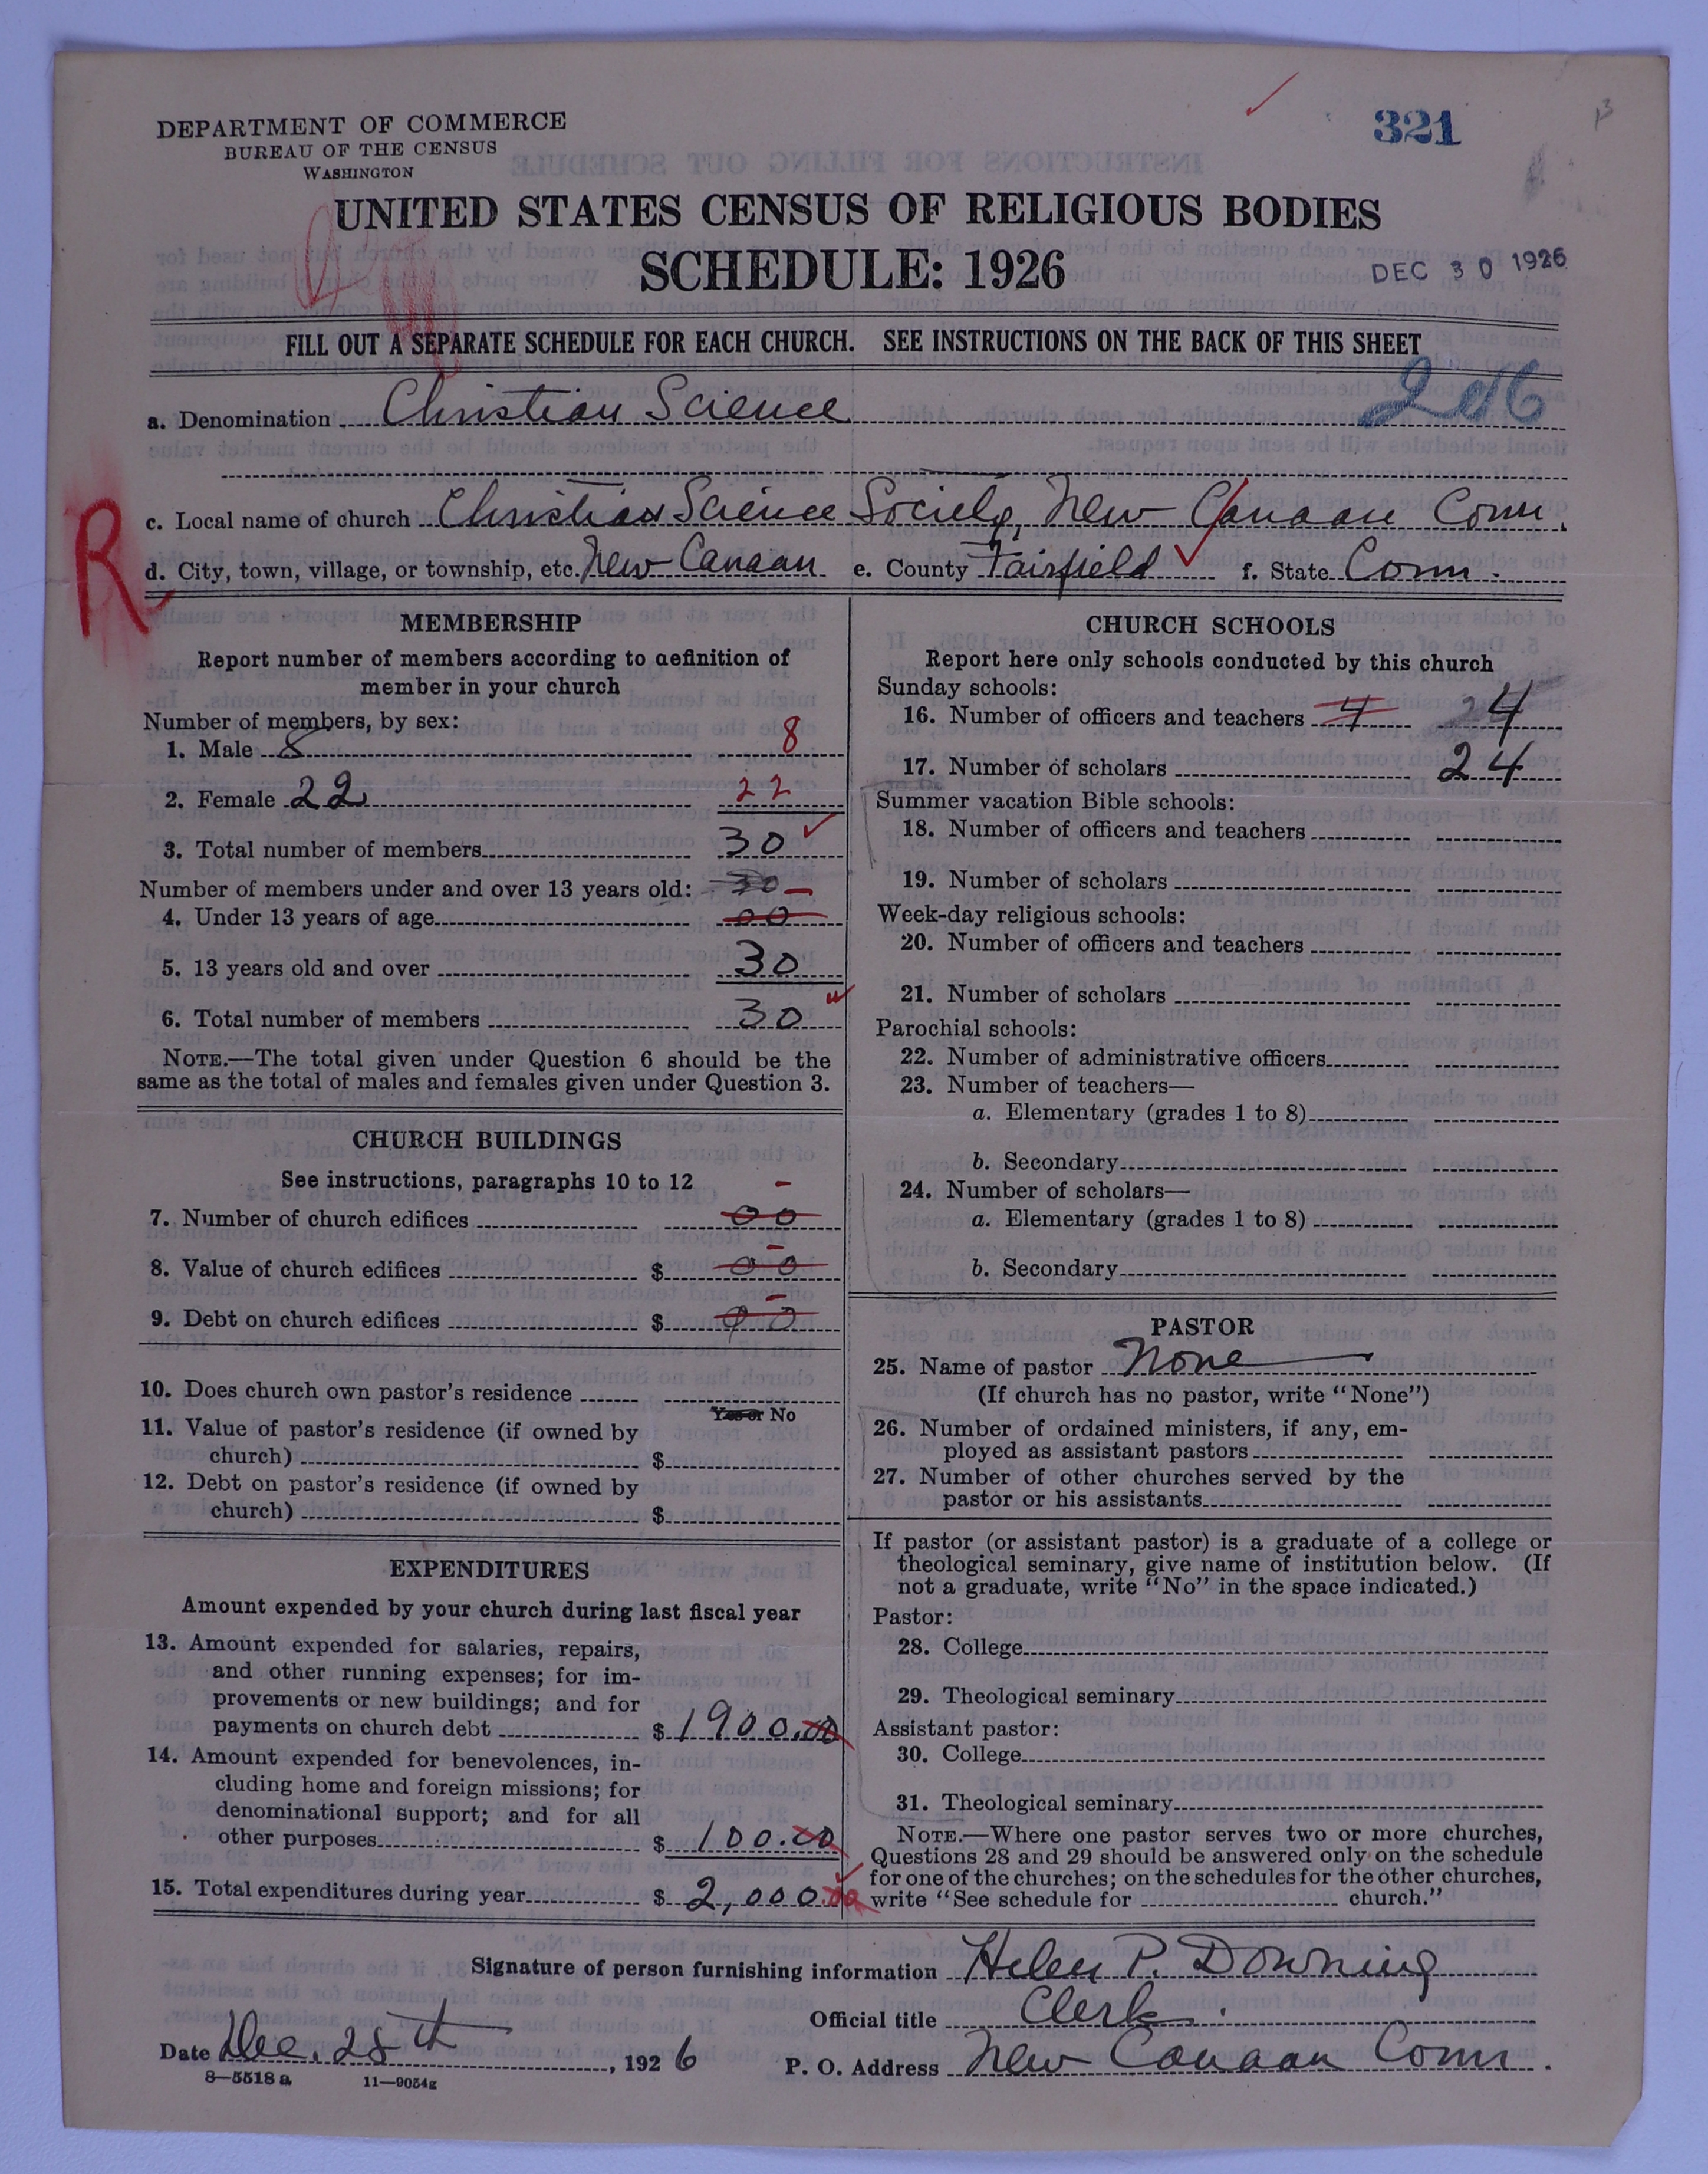 DEPARTMENT OF COMMERCE
BUREAU OF THE CENSUS
WASHINGTON
321
UNITED STATES CENSUS OF RELIGIOUS BODIES
SCHEDULE: 1926
DEC 30 1926
FILL OUT A SEPARATE SCHEDULE FOR EACH CHURCH. SEE INSTRUCTIONS ON THE BACK OF THIS SHEET
a. Denomination Christian Science
c. Local name of church Christian Science Society, New Canaan Conn.
d. City, town, village, or township, etc. New Canaan e. County Fairfield f. State Conn.
R
MEMBERSHIP
Report number of members according to definition of
member in your church
Number of members, by sex:
1. Male 8 8
2. Female 22 22
3. Total number of members 30
Number of members under and over 13 years old: 30 –
4. Under 13 years of age 00
5. 13 years old and over 30
6. Total number of members 30
NOTE.—The total given under Question 6 should be the
same as the total of males and females given under Question 3.
CHURCH BUILDINGS
See instructions, paragraphs 10 to 12 –
7. Number of church edifices 00
8. Value of church edifices $ 00
9. Debt on church edifices $ 00
10. Does church own pastor's residence
Yes or No
11. Value of pastor's residence (if owned by
church) $
12. Debt on pastor's residence (if owned by
church) $
EXPENDITURES
Amount expended by your church during last fiscal year
13. Amount expended for salaries, repairs,
and other running expenses; for im-
provements or new buildings; and for
payments on church debt $ 1900.00
14. Amount expended for benevolences, in-
cluding home and foreign missions; for
denominational support; and for all
other purposes $ 100.00
15. Total expenditures during year $ 2,000.00
CHURCH SCHOOLS
Report here only schools conducted by this church
Sunday schools:
16. Number of officers and teachers 4 4
17. Number of scholars 24
Summer vacation Bible schools:
18. Number of officers and teachers
19. Number of scholars
Week-day religious schools:
20. Number of officers and teachers
21. Number of scholars
Parochial schools:
22. Number of administrative officers
23. Number of teachers—
a. Elementary (grades 1 to 8)
b. Secondary
24. Number of scholars—
a. Elementary (grades 1 to 8)
b. Secondary
PASTOR
25. Name of pastor None
(If church has no pastor, write "None")
26. Number of ordained ministers, if any, em-
ployed as assistant pastors
27. Number of other churches served by the
pastor or his assistants
If pastor (or assistant pastor) is a graduate of a college or
theological seminary, give name of institution below. (If
not a graduate, write "No" in the space indicated.)
Pastor:
28. College
29. Theological seminary
Assistant pastor:
30. College
31. Theological seminary
NOTE.—Where one pastor serves two or more churches,
Questions 28 and 29 should be answered only on the schedule
for one of the churches; on the schedules for the other churches,
write "See schedule for church."
Signature of person furnishing information Helen P. Downing
Official title Clerk.
Date Dec. 28th, 1926 P. O. Address New Canaan Conn.
8—5518 a 11—9054g